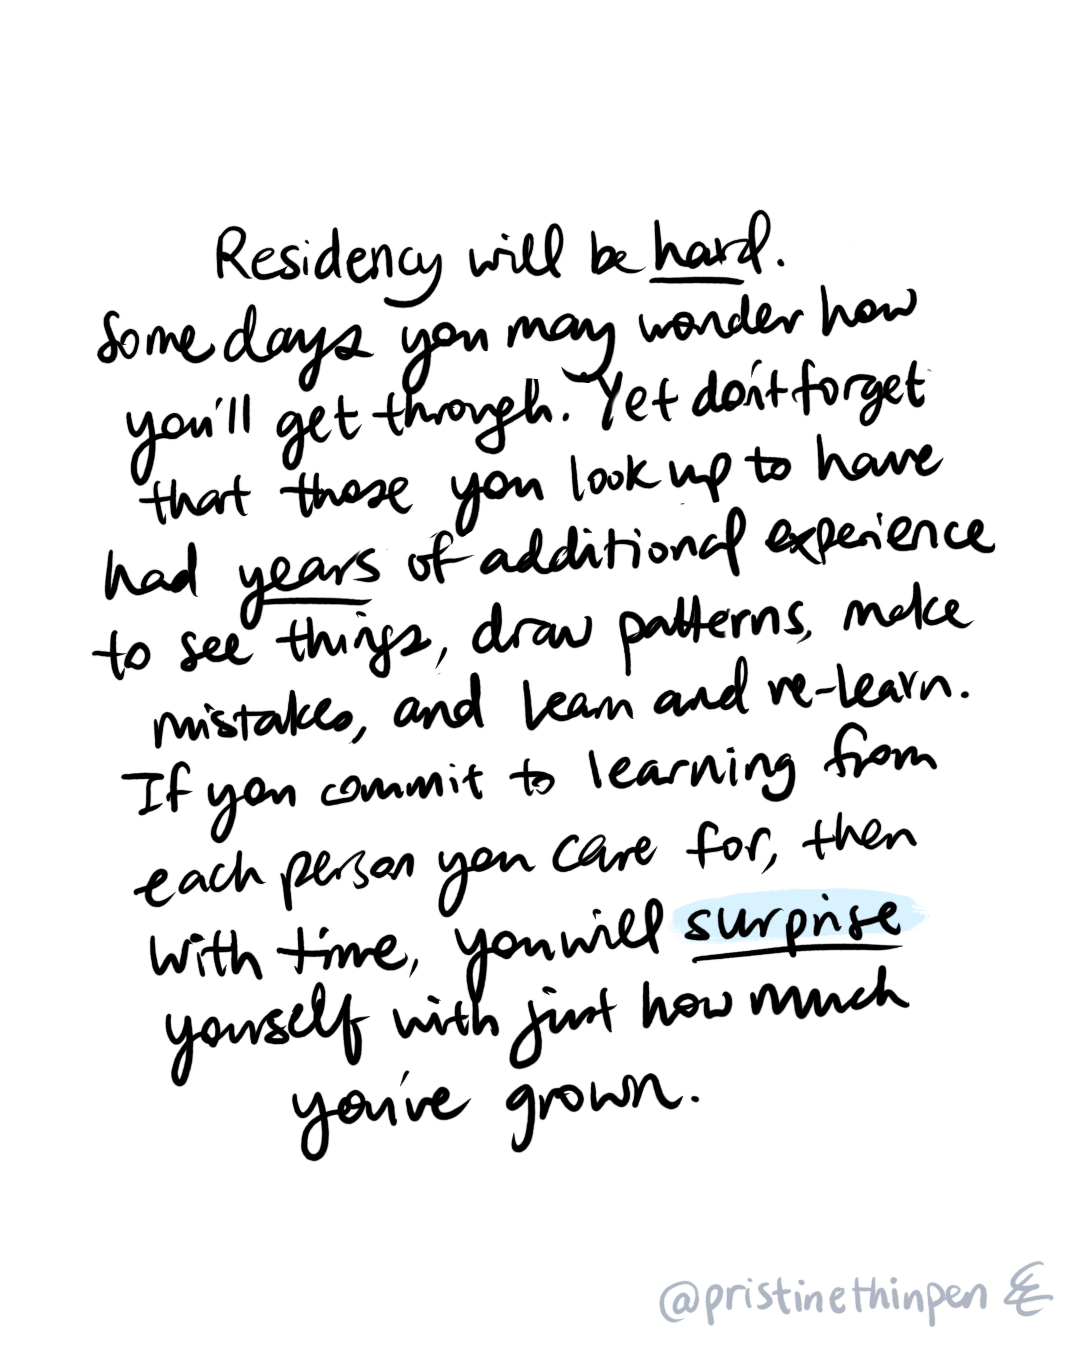 Residency will be hard.
Some days you may wonder how
you'll get through. Yet don't forget
that those you look up to have
had years of additional experience
to see things, draw patterns, make
mistakes, and learn and re-learn.
If you commit to learning from
each person you care for, then
with time, you will surprise
yourself with just how much
you've grown.
@pristinethinpen